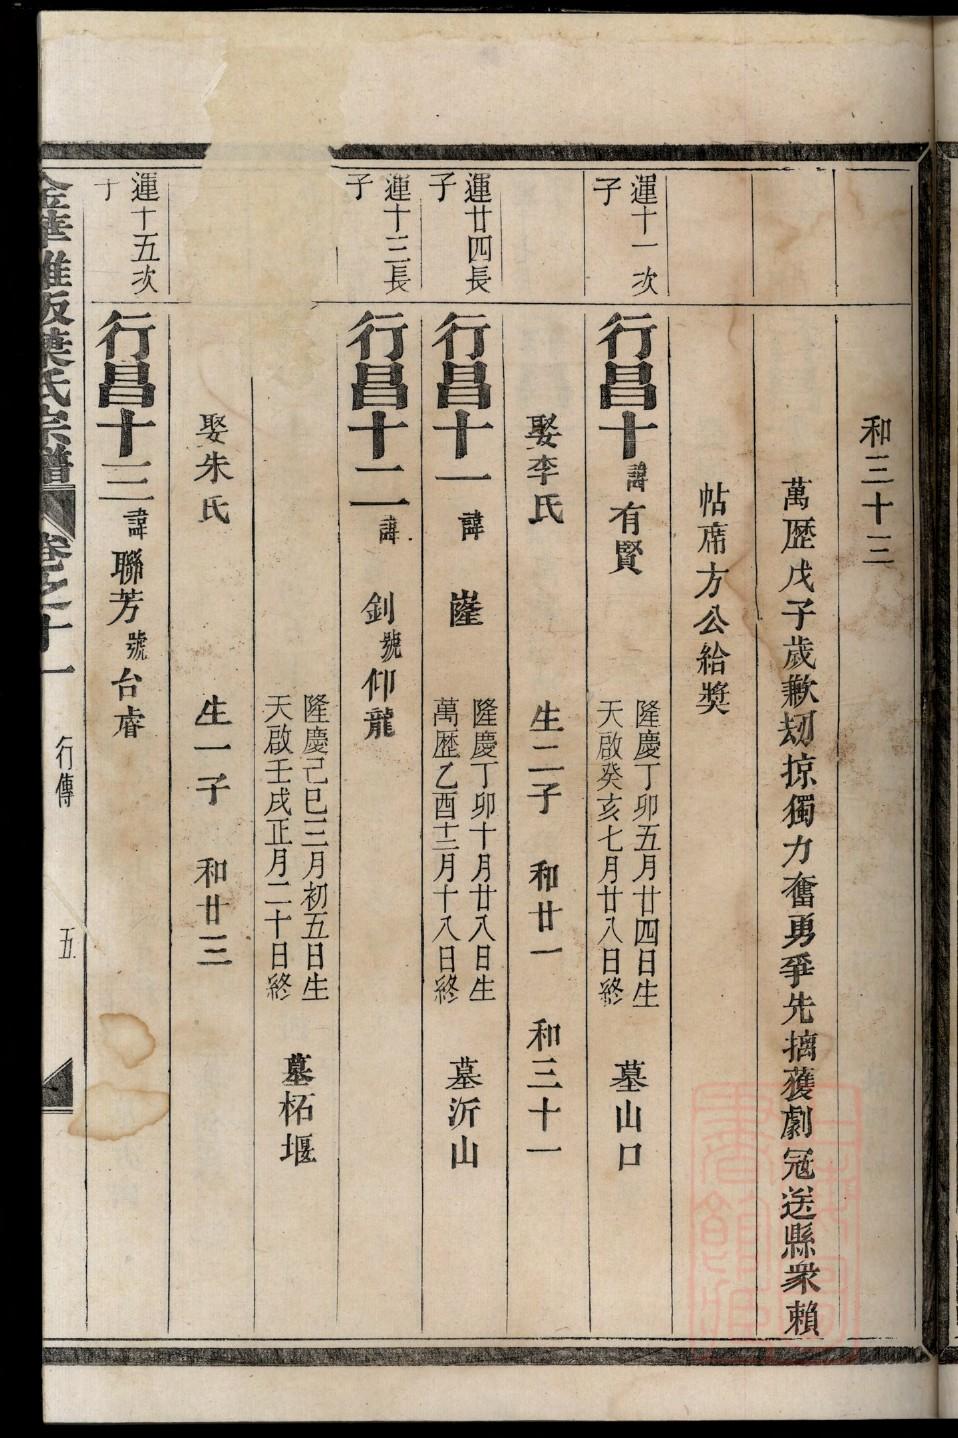 和三十三
萬歷戊子歲歉刼掠獨力奮勇爭先擒獲劇冦送縣衆賴
帖席方公給奬
運十一次
子
行昌十 諱有賢
隆慶丁卯五月廿四日生
天啟癸亥七月廿八日終
墓山口
娶李氏 生二子 和廿一 和三十一
運廿四長
子
行昌十一 諱 嶐
隆慶丁卯十月廿八日生
萬歷乙酉十二月十八日終
墓沂山
運十三長
子
行昌十二 諱 釗 號仰龍
隆慶己巳三月初五日生
天啟壬戌正月二十日終
墓柘堰
娶朱氏 生一子 和廿三
運十五次
子
行昌十三 諱聯芳 號台睿
金華 氏宗譜 卷之十一 行傳 五